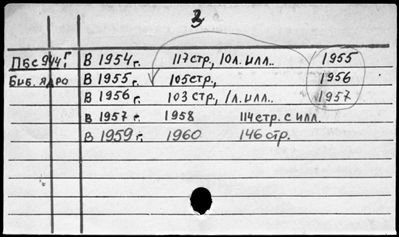 2
Пбс944г В 1954г. 117стр., 10л.илл.. 1955
Биб. ядро В 1955г. 105стр., 1956
В 1956г. 103 стр., 1л.илл.. 1957
В 1957г. 1958 114стр. с илл.
В 1959г. 1960 146 стр.